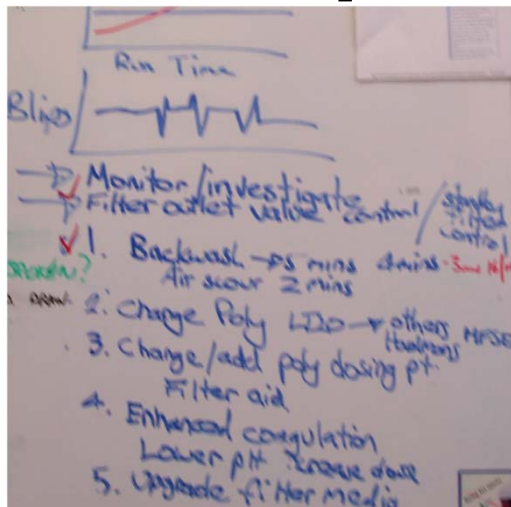 Run Time
Blips
Monitor/investigate
Filter outlet valve control / standby filter control
1. Backwash → 5 mins 4mins
Air scour 2 mins
2. Change Poly LT20 → others
3. Change/add poly dosing pt.
Filter aid
4. Enhanced coagulation
Lower pH increase dose
5. Upgrade filter media